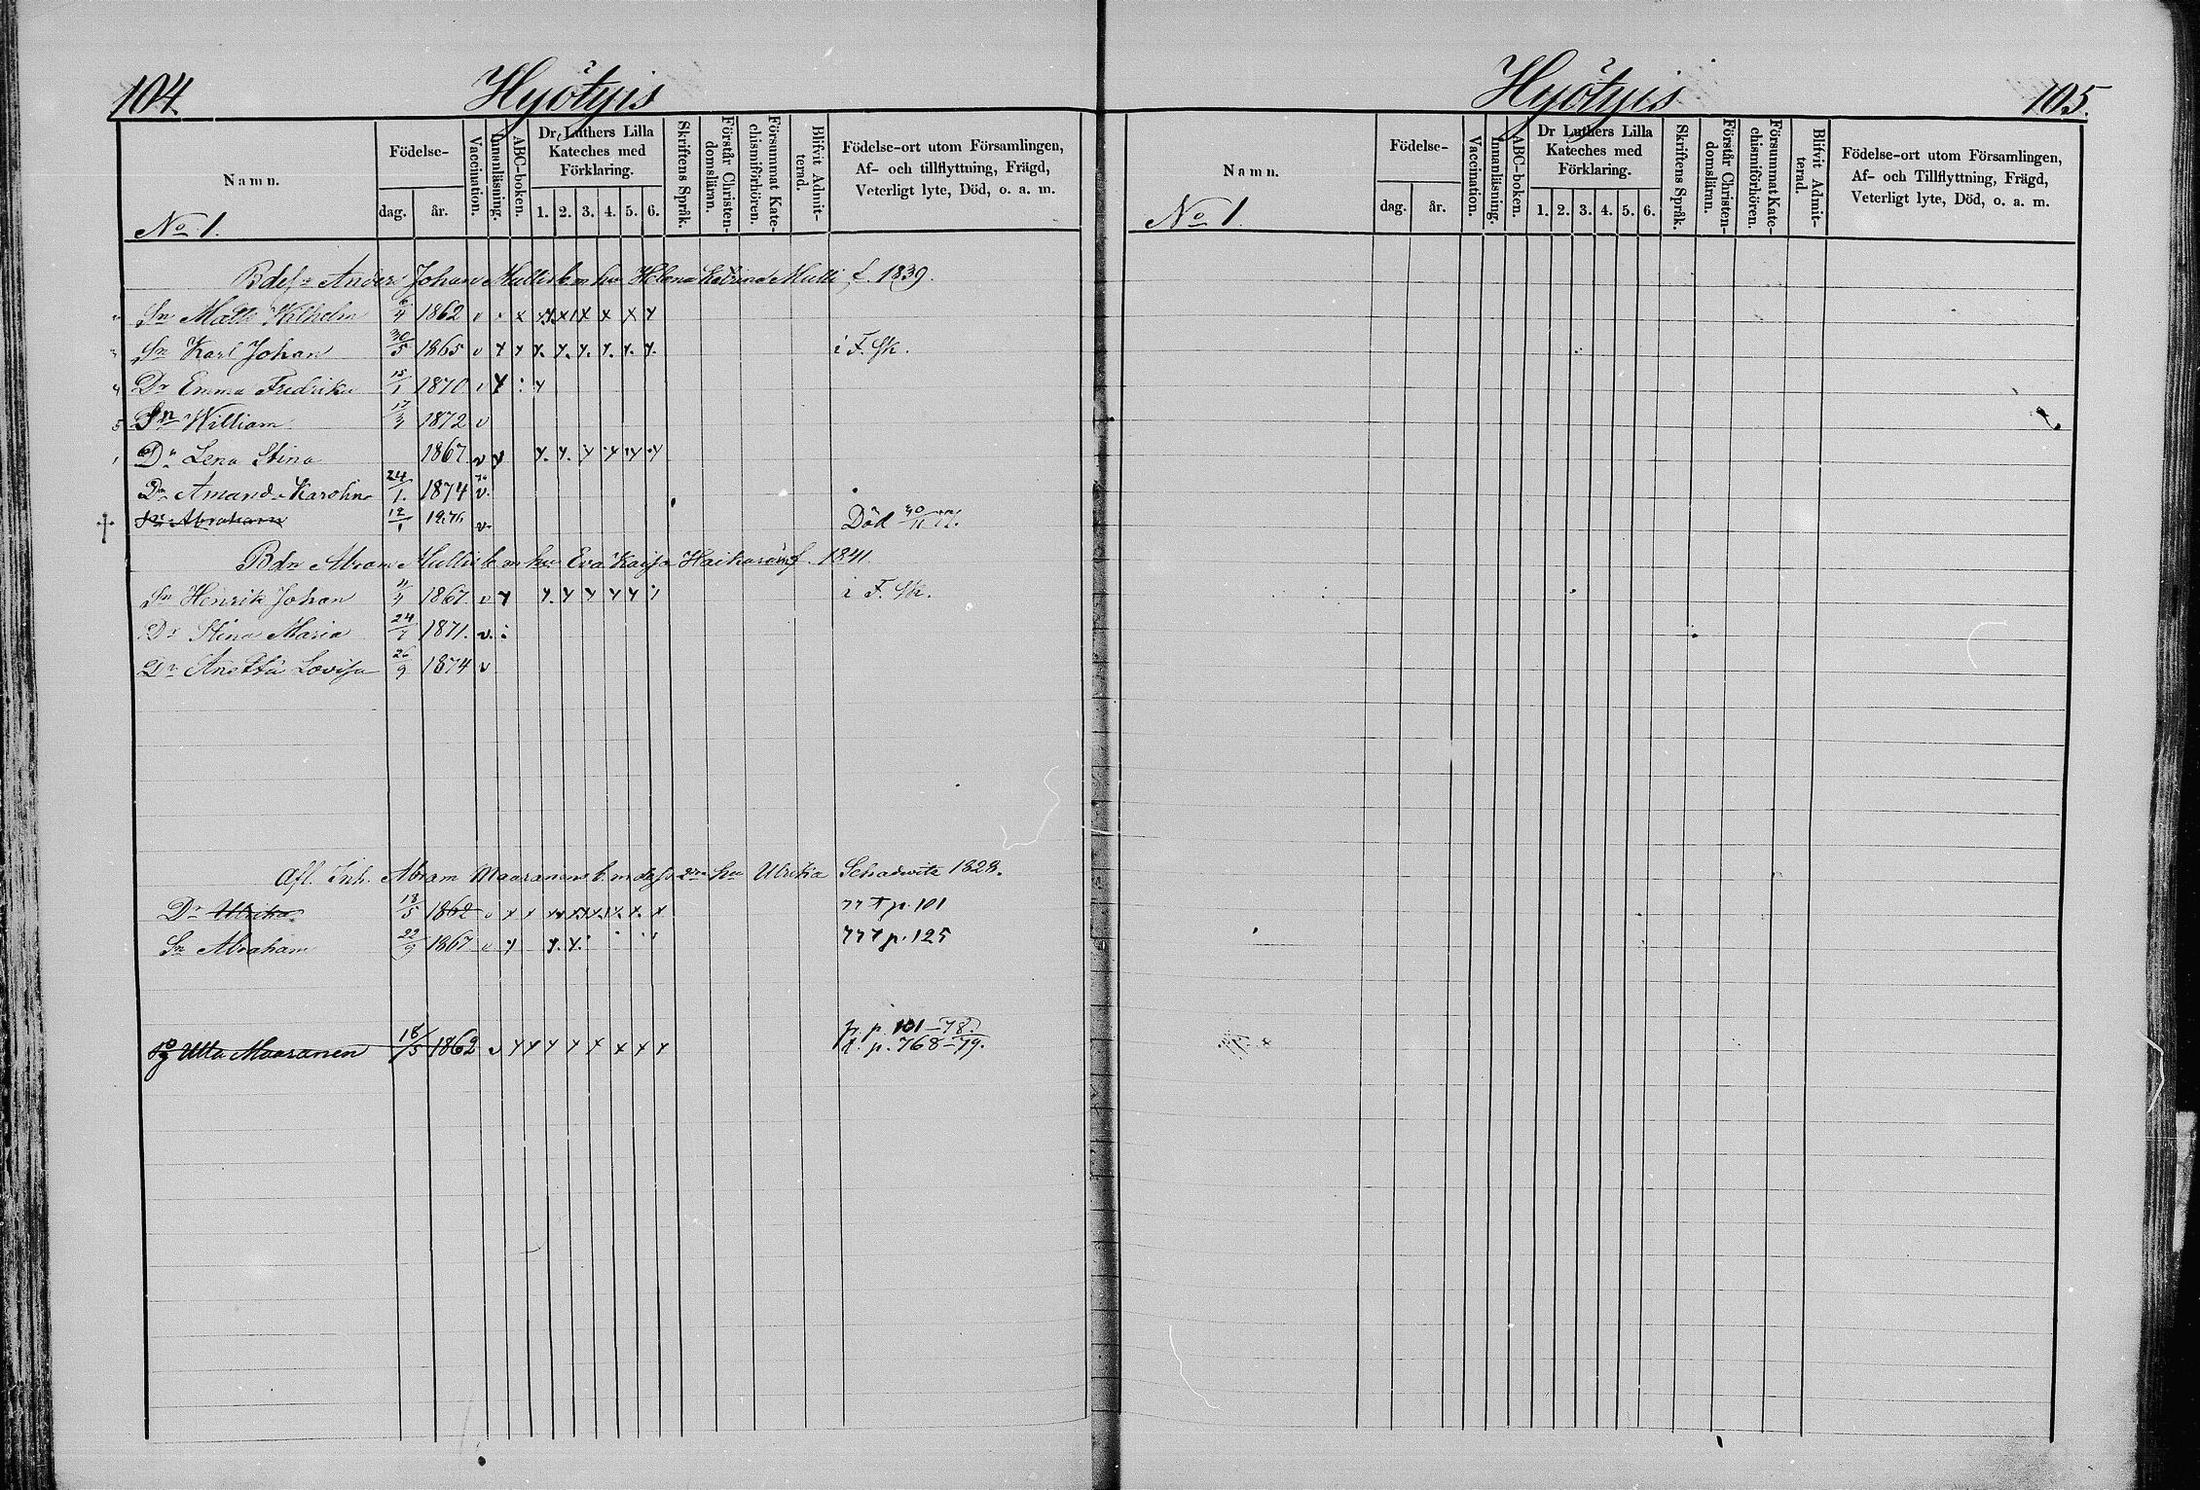 104.
Hyötyis
Namn.
Födelse-
dag.
år.
Vaccination.
Innanläsning.
ABC-boken.
Dr Luthers Lilla
Kateches med
Förklaring.
1. 2. 3. 4. 5. 6.
Skriftens Språk.
Förstår Christen-
domsläran.
Försummat Kate-
chismiförhören.
Blifvit Admit-
terad.
Födelse-ort utom Församlingen,
Af- och tillflyttning, Frägd,
Veterligt lyte, Död, o. a. m.
No 1.
Anders Johan Mullis b. m hu Helena Katrina Mulli f. 1839.
Sn Matts Wilhelm 6/4 1862 v
3 Sn Karl Johan 30/5 1865 v i F. Sk.
4 Dr Emma Fredrika 15/1 1870 v
5 Sn William 17/3 1872 v
1 Dr Lena Stina 1867 v
Dr Amanda Karolin 24/1. 1874 v.
Sn Abraham 12/1 Död 30/11 77.
Bdn Abram Mullis b. m hu Eva Kajsa f. 1841.
Sn Henrik Johan 11/4 1867 v i F. Sk.
Dr Stina Maria 24/7 1871. v.
Dr Anetta Lovisa 26/9 1874 v
Afl. Inh. Abram Maaranens b. m hu Ulrika 1828.
Dr Ulrika 18/5 1862 v x x 77 p. 101
Sn Abraham 22/9 1867 v 777 p. 125
Utta Maaranen 18/5 1862 v
p. p. 101–78.
p. 768–79.
Hyötyis
105.
Namn.
Födelse-
dag.
år.
Vaccination.
Innanläsning.
ABC-boken.
Dr Luthers Lilla
Kateches med
Förklaring.
1. 2. 3. 4. 5. 6.
Skriftens Språk.
Förstår Christen-
domsläran.
Försummat Kate-
chismiförhören.
Blifvit Admit-
terad.
Födelse-ort utom Församlingen,
Af- och Tillflyttning, Frägd,
Veterligt lyte, Död, o. a. m.
No 1.